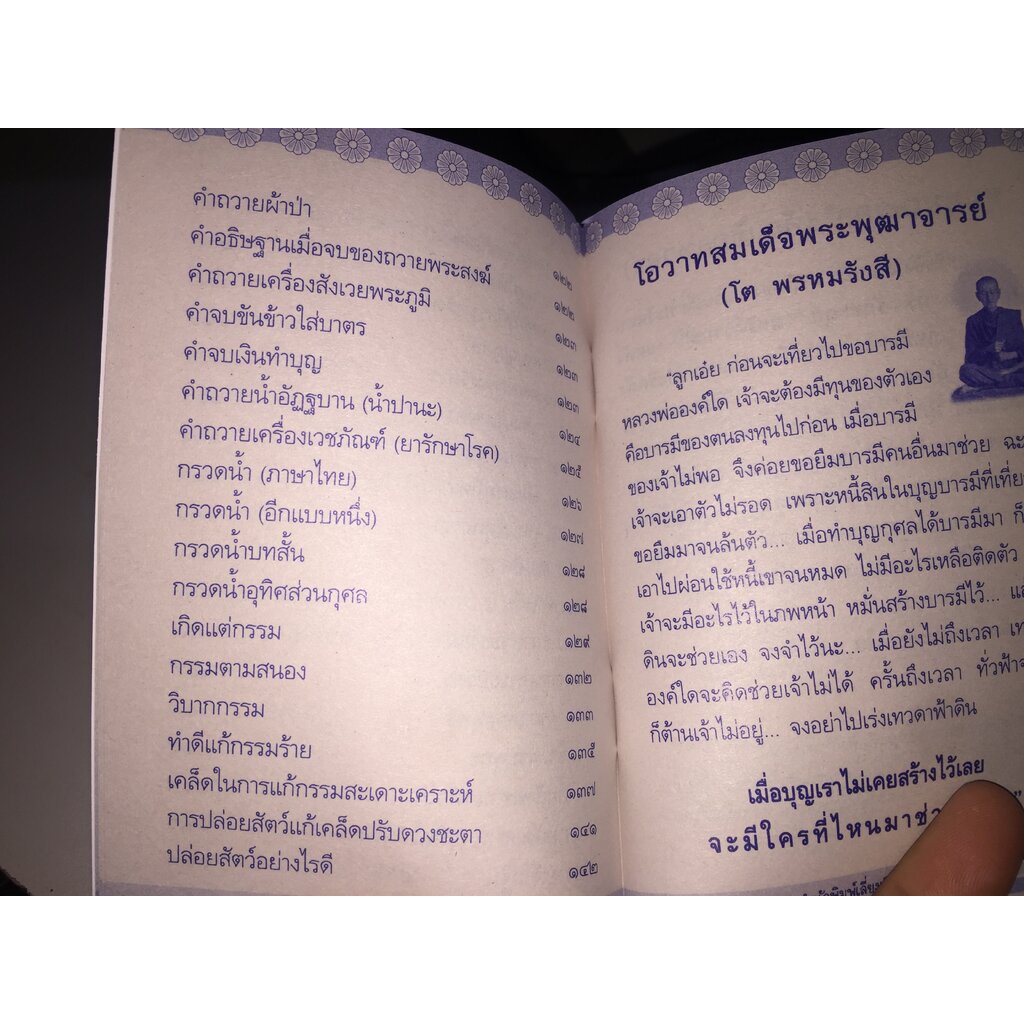 คำถวายผ้าป่า ๑๒๒
คำอธิษฐานเมื่อจบของถวายพระสงฆ์ ๑๒๒
คำถวายเครื่องสังเวยพระภูมิ ๑๒๓
คำจบขันข้าวใส่บาตร ๑๒๓
คำจบเงินทำบุญ ๑๒๓
คำถวายน้ำอัฏฐบาน (น้ำปานะ) ๑๒๔
คำถวายเครื่องเวชภัณฑ์ (ยารักษาโรค) ๑๒๕
กรวดน้ำ (ภาษาไทย) ๑๒๖
กรวดน้ำ (อีกแบบหนึ่ง) ๑๒๗
กรวดน้ำบทสั้น ๑๒๘
กรวดน้ำอุทิศส่วนกุศล ๑๒๘
เกิดแต่กรรม ๑๒๙
กรรมตามสนอง ๑๓๒
วิบากกรรม ๑๓๓
ทำดีแก้กรรมร้าย ๑๓๕
เคล็ดในการแก้กรรมสะเดาะเคราะห์ ๑๓๗
การปล่อยสัตว์แก้เคล็ดปรับดวงชะตา ๑๔๑
ปล่อยสัตว์อย่างไรดี ๑๔๒
โอวาทสมเด็จพระพุฒาจารย์
(โต พรหมรังสี)
"ลูกเอ๋ย ก่อนจะเที่ยวไปขอบารมี
หลวงพ่อองค์ใด เจ้าจะต้องมีทุนของตัวเอง
คือบารมีของตนลงทุนไปก่อน เมื่อบารมี
ของเจ้าไม่พอ จึงค่อยขอยืมบารมีคนอื่นมาช่วย ฉะ
เจ้าจะเอาตัวไม่รอด เพราะหนี้สินในบุญบารมีที่เที่ย
ขอยืมมาจนล้นตัว... เมื่อทำบุญกุศลได้บารมีมา ก็
เอาไปผ่อนใช้หนี้เขาจนหมด ไม่มีอะไรเหลือติดตัว
เจ้าจะมีอะไรไว้ในภพหน้า หมั่นสร้างบารมีไว้... แ
ดินจะช่วยเอง จงจำไว้นะ... เมื่อยังไม่ถึงเวลา เท
องค์ใดจะคิดช่วยเจ้าไม่ได้ ครั้นถึงเวลา ทั่วฟ้าจ
ก็ต้านเจ้าไม่อยู่... จงอย่าไปเร่งเทวดาฟ้าดิน
เมื่อบุญเราไม่เคยสร้างไว้เลย
จะมีใครที่ไหนมาช่ว